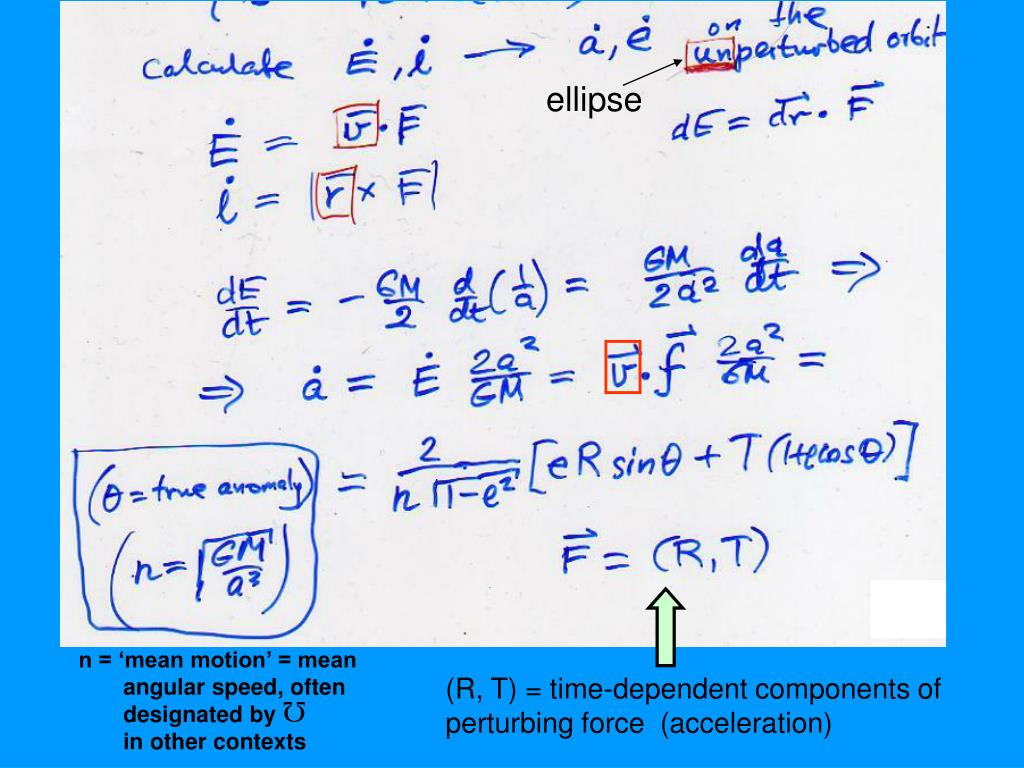 on the
calculate Ė, l̇ → ȧ, ė unperturbed orbit
ellipse
Ė = v⃗·F⃗ dE = dr⃗·F⃗
l̇ = |r⃗ × F⃗|
dE/dt = - GM/2 d/dt (1/a) = GM/2a² da/dt ⇒
⇒ ȧ = Ė 2a²/GM = v⃗·f⃗ 2a²/GM =
(θ = true anomaly) = 2/(n√(1-e²)) [e R sinθ + T(1+e cosθ)]
(n = √(GM/a³)) F⃗ = (R, T)
n = ‘mean motion’ = mean
angular speed, often
designated by ℧
in other contexts
(R, T) = time-dependent components of
perturbing force (acceleration)